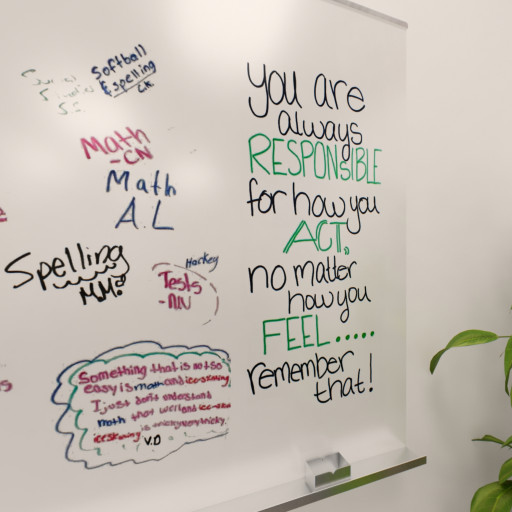 Softball
& spelling
CK
Math
-CN
Math
A.L
Spelling
M.M.
Hockey
Tests
-NN
Something that is not so
easy is math and ice-skating
I just don't understand
math
V.D
you are
always
RESPONSIBLE
for how you
ACT,
no matter
how you
FEEL.....
remember
that!